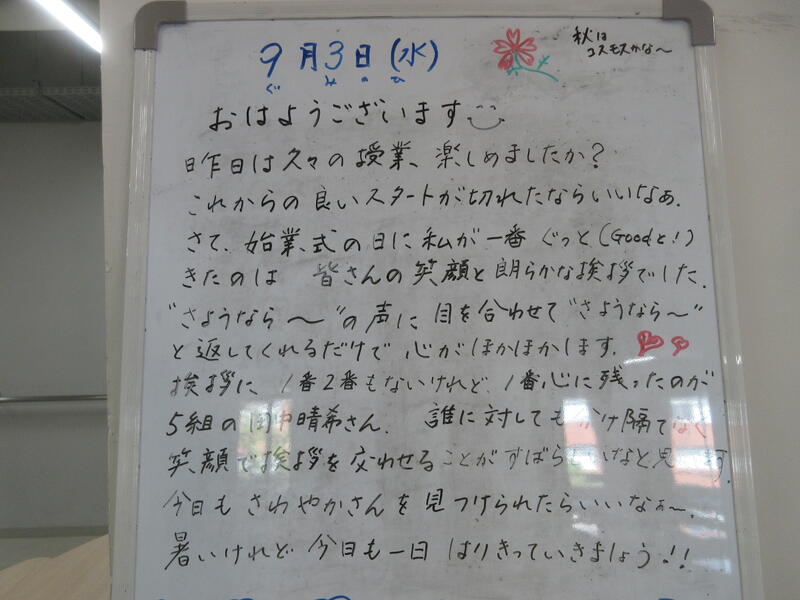 9月3日(水)
ぐ み の ひ
秋は
コスモスかな~
おはようございます
昨日は久々の授業、楽しめましたか?
これからの良いスタートが切れたならいいなぁ.
さて、始業式の日に私が一番 ぐっと(Goodと!)
きたのは 皆さんの笑顔と朗らかな挨拶でした.
"さようなら〜"の声に目を合わせて"さようなら〜"
と返してくれるだけで 心がほかほかします.
挨拶に 1番2番もないけれど、1番心に残ったのが
5組の田中晴希さん. 誰に対してもわけ隔てなく
笑顔で挨拶を交わせることがすばらしいなと思います.
今日も さわやかさんを見つけられたらいいなぁ~.
暑いけれど 今日も一日 はりきっていきましょう!!